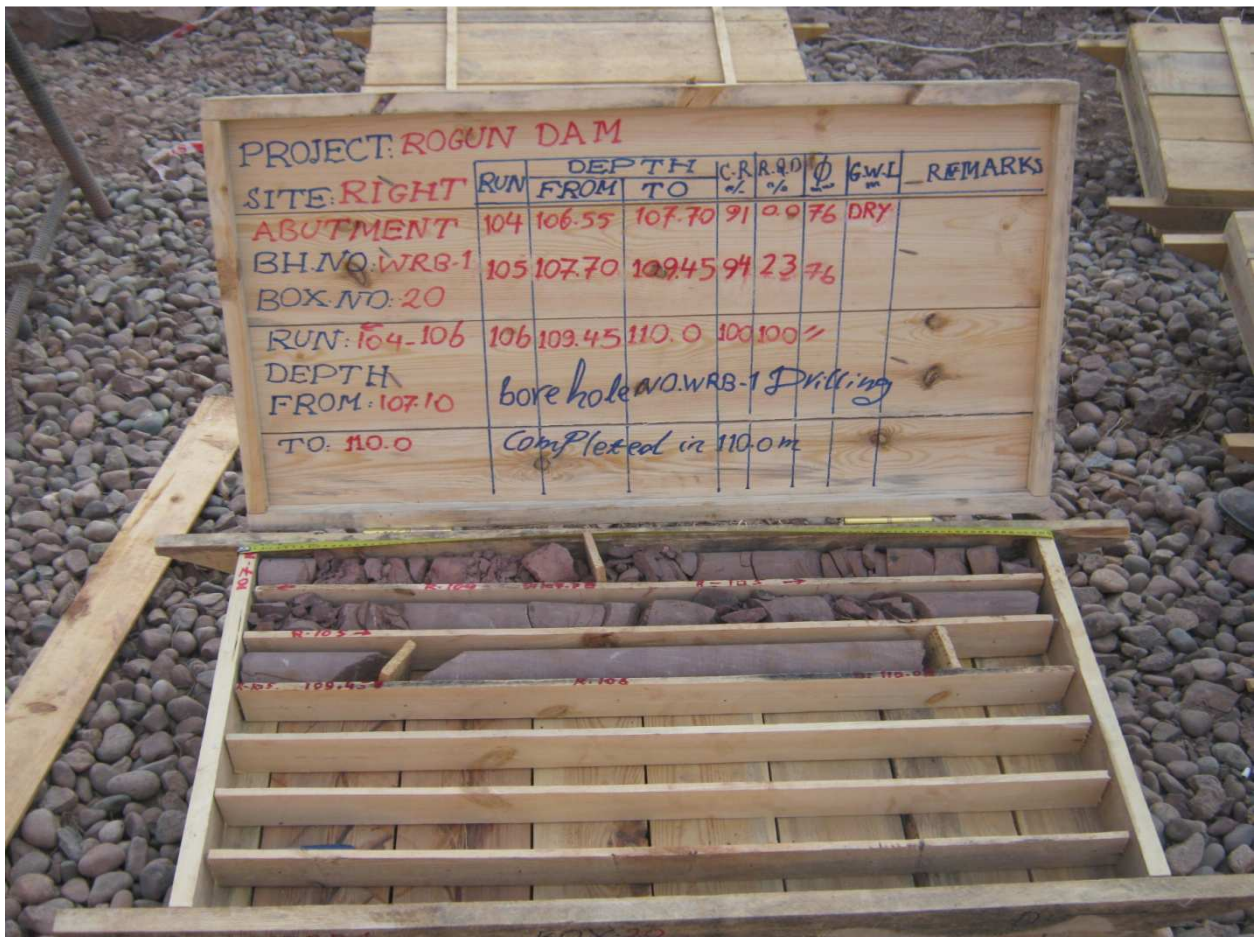 PROJECT: ROGUN DAM
SITE: RIGHT
ABUTMENT
BH.NO: WRB-1
BOX.NO: 20
RUN: 104-106
DEPTH
FROM: 107.10
TO: 110.0
RUN DEPTH C.R R.Q.D Ø G.W.L REMARKS
FROM TO % % m
104 106.55 107.70 91 0.0 76 DRY
105 107.70 109.45 94 23 76
106 109.45 110.0 100 100 〃
bore hole NO.WRB-1 Drilling
Completed in 110.0 m
R-104
R-105 →
R-105 →
R-105 109.45
R-106
BOX-20